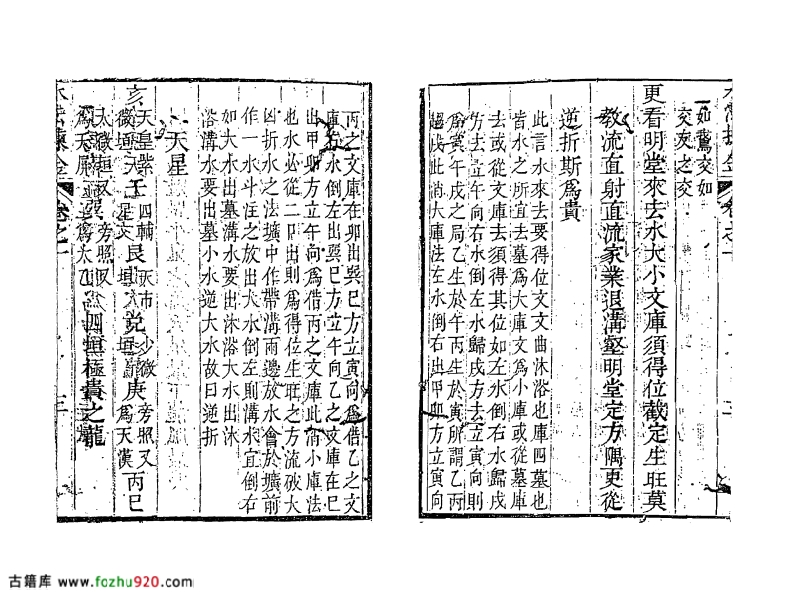 一如鵞交如
交文之交
更看明堂來去水大小文庫須得位截定生旺莫
教流直射直流家業退溝壑明堂定方隅更從
逆折斯爲貴
此言水來去要得位文文曲沐浴也庫四墓也
皆水之所宜去墓爲大庫文爲小庫或從墓庫
去或從文庫去須得其位如左水倒右水歸戌
方去立午向右水倒左水歸戌方去立寅向則
爲寅午戌之局乙生於午丙生於寅所謂乙丙
趨戌此消大庫法左水倒右出甲卯方立寅向
丙之文庫在卯出巽巳方立寅向爲借乙之文
庫右水倒左出巽巳方立午向乙之文庫在巳
出甲卯方立午向爲借丙之文庫此消小庫法
也水必從二口出則爲得位生旺之方流破大
凶折水之法壙中作帶溝兩邊放水會於壙前
作一水斗注之放出大水倒左則溝水宜倒右
如大水出墓溝水要出沐浴大水出沐
浴溝水要出墓小水逆大水故曰逆折
天星
亥 天皇紫微垣 壬 艮 四輔 天市垣 兌 少微 庚 旁照又爲天漢 丙巳
太微垣又爲天屏 旁照又爲太乙 四垣極貴之龍
卷之一
三
古籍库 www.fozhu920.com